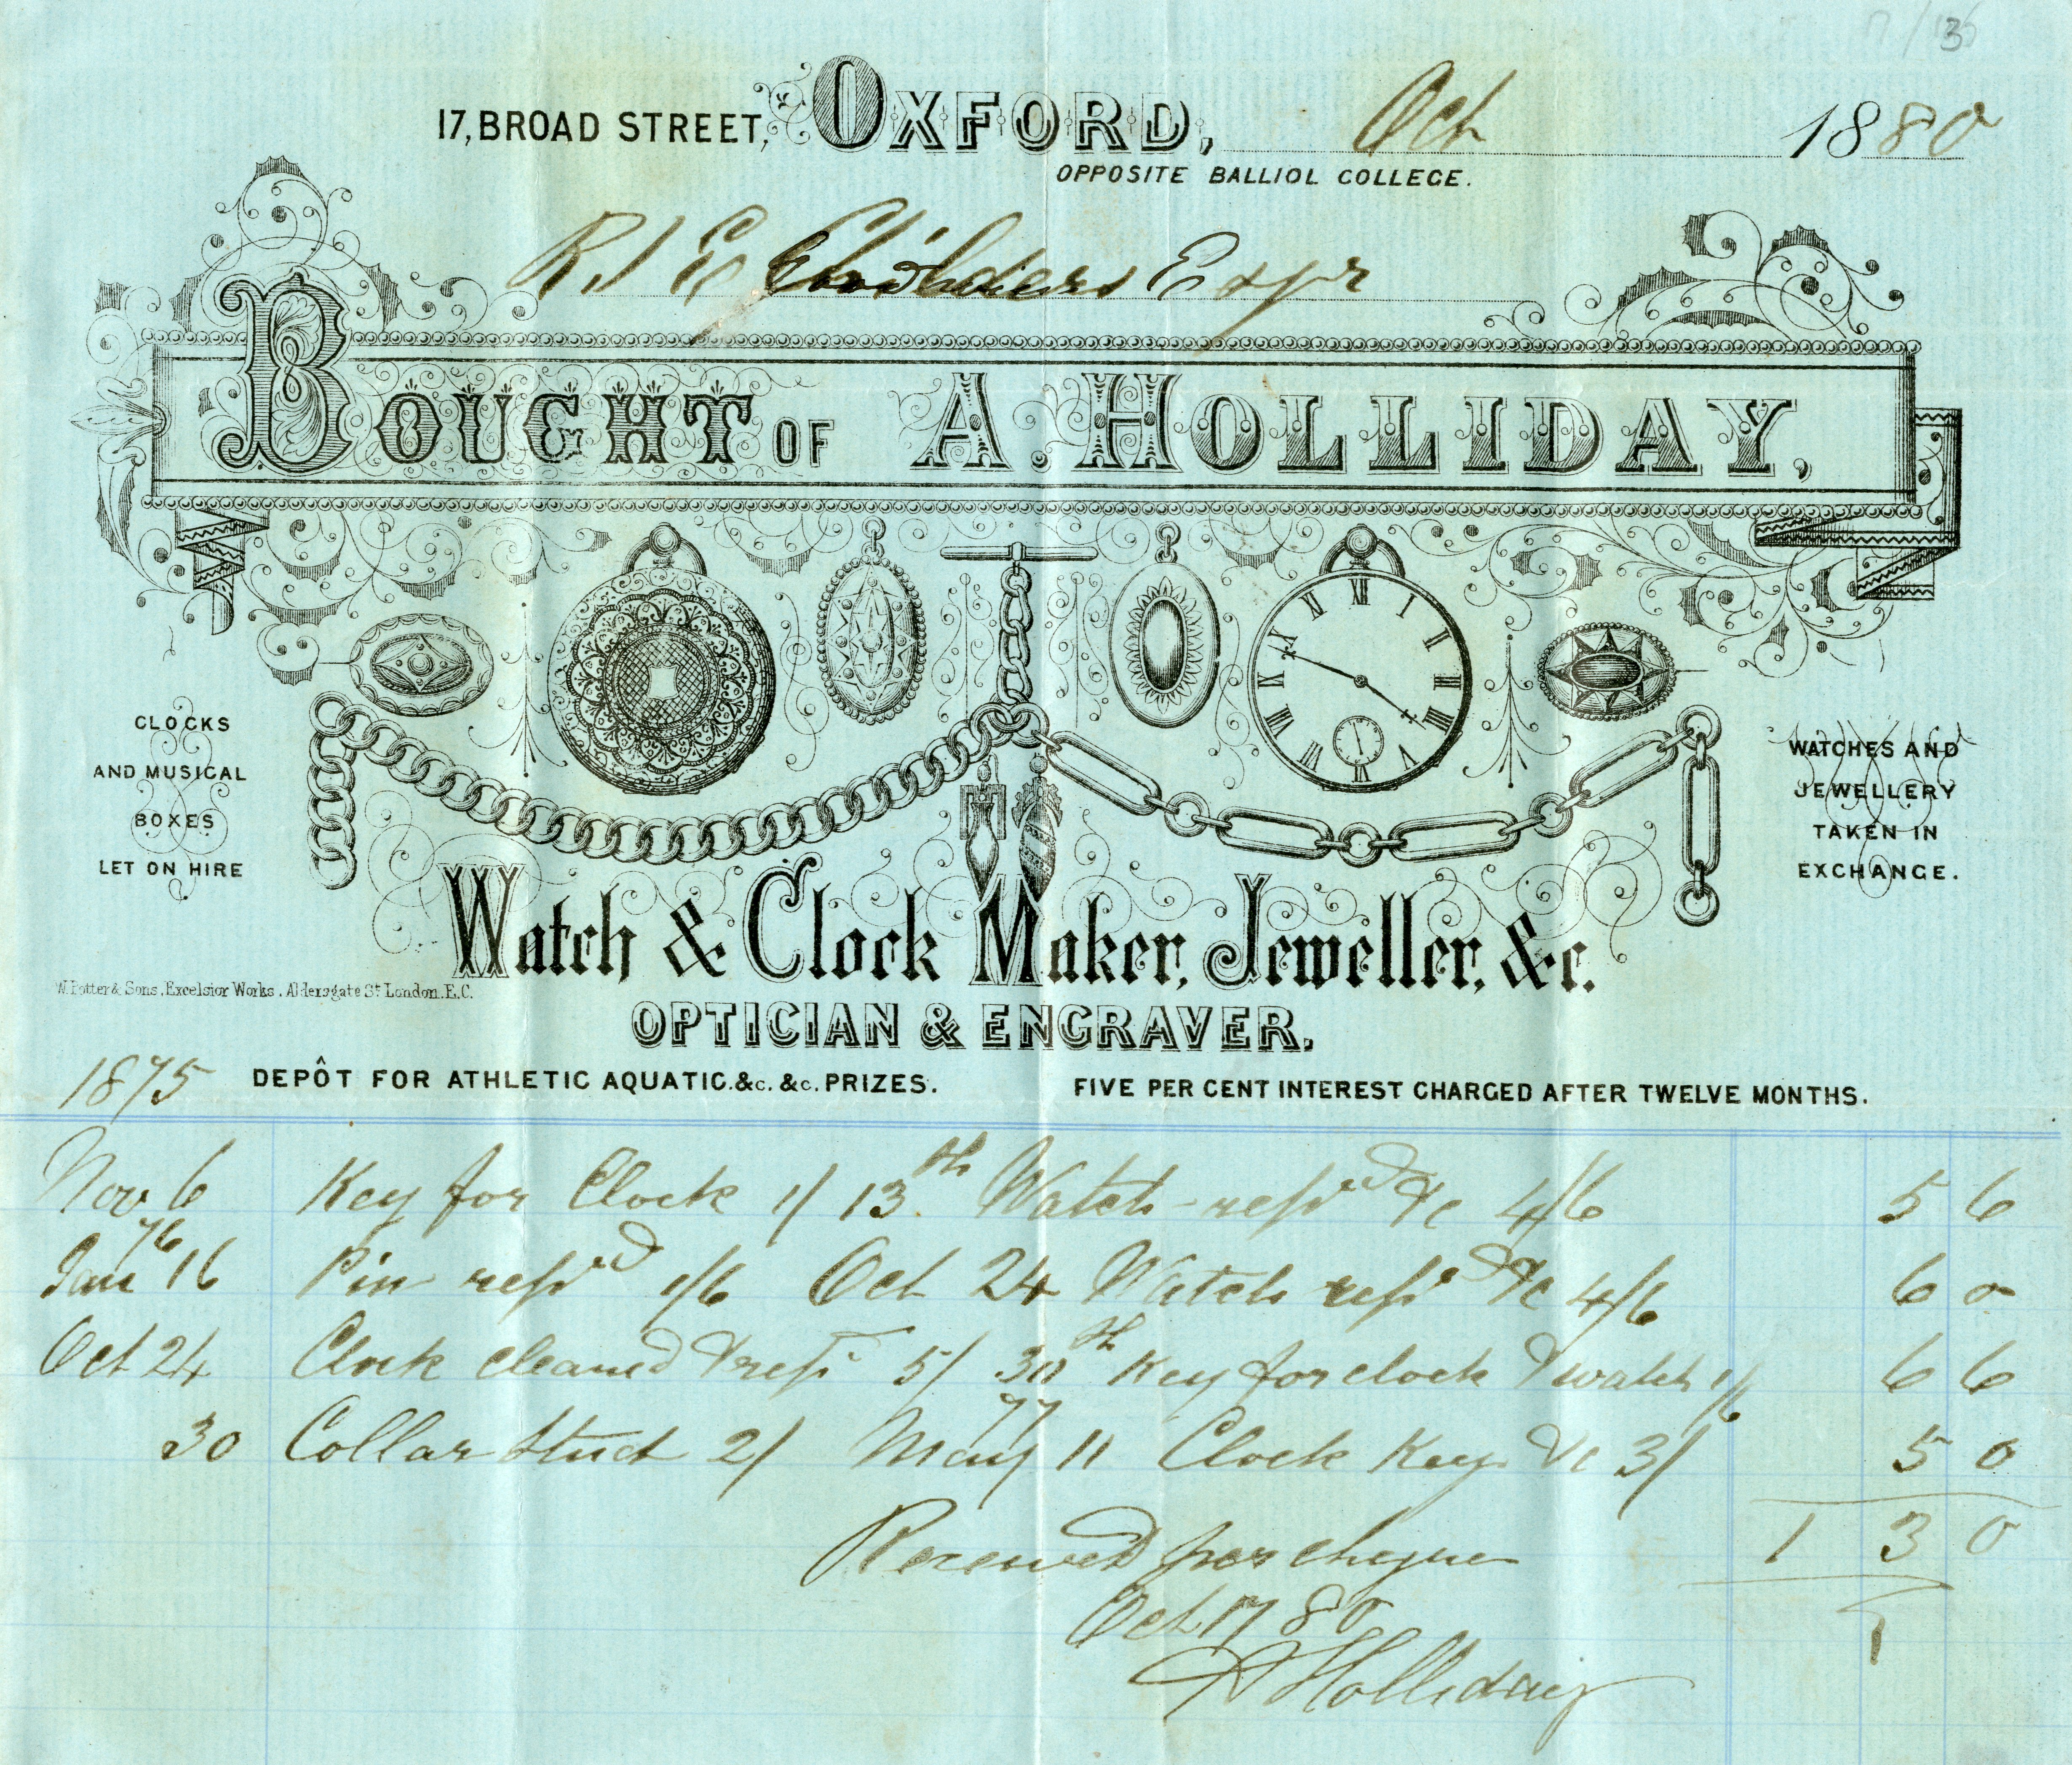 36
17, BROAD STREET, OXFORD, Oct 1880
OPPOSITE BALLIOL COLLEGE.
R J E Childers Esqr
BOUGHT OF A. HOLLIDAY,
CLOCKS
AND MUSICAL
BOXES
LET ON HIRE
WATCHES AND
JEWELLERY
TAKEN IN
EXCHANGE.
XII I II III V VI VII VIII IX X XI
Watch & Clock Maker, Jeweller, &c.
W. Potter & Sons, Excelsior Works, Aldersgate St. London. E.C.
OPTICIAN & ENGRAVER.
1875 DEPÔT FOR ATHLETIC AQUATIC. &c. &c. PRIZES. FIVE PER CENT INTEREST CHARGED AFTER TWELVE MONTHS.
Nov 6 Key for Clock 1/ 13th Watch repird &c 4/6 5 6
76
Jan 16 Pin repird 1/6 Oct 24 Watch repird &c 4/6 6 0
Oct 24 Clock cleaned & repr 5/ 30th Key for clock & watch 1/6 6 6
77
30 Collar Stud 2/ May 11 Clock Key &c 3/ 5 0
1 3 0
Received per cheque
Oct 17 80
A Holliday